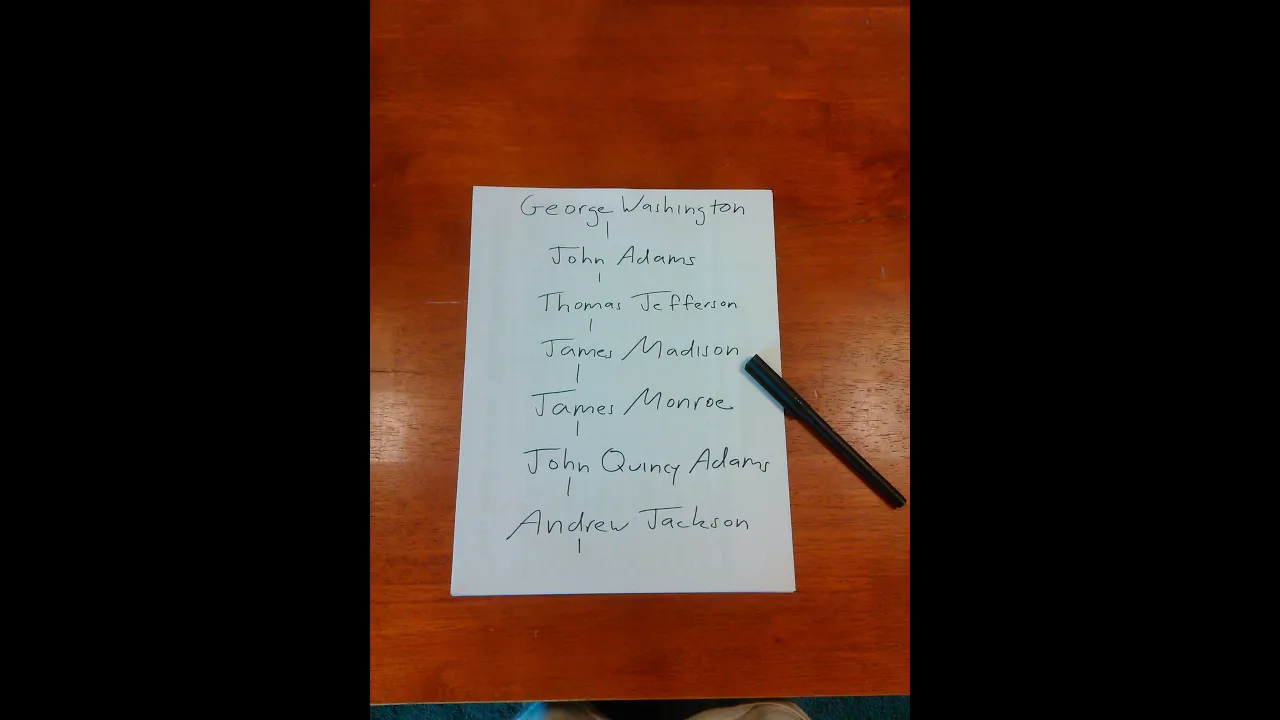 George Washington
John Adams
Thomas Jefferson
James Madison
James Monroe
John Quincy Adams
Andrew Jackson